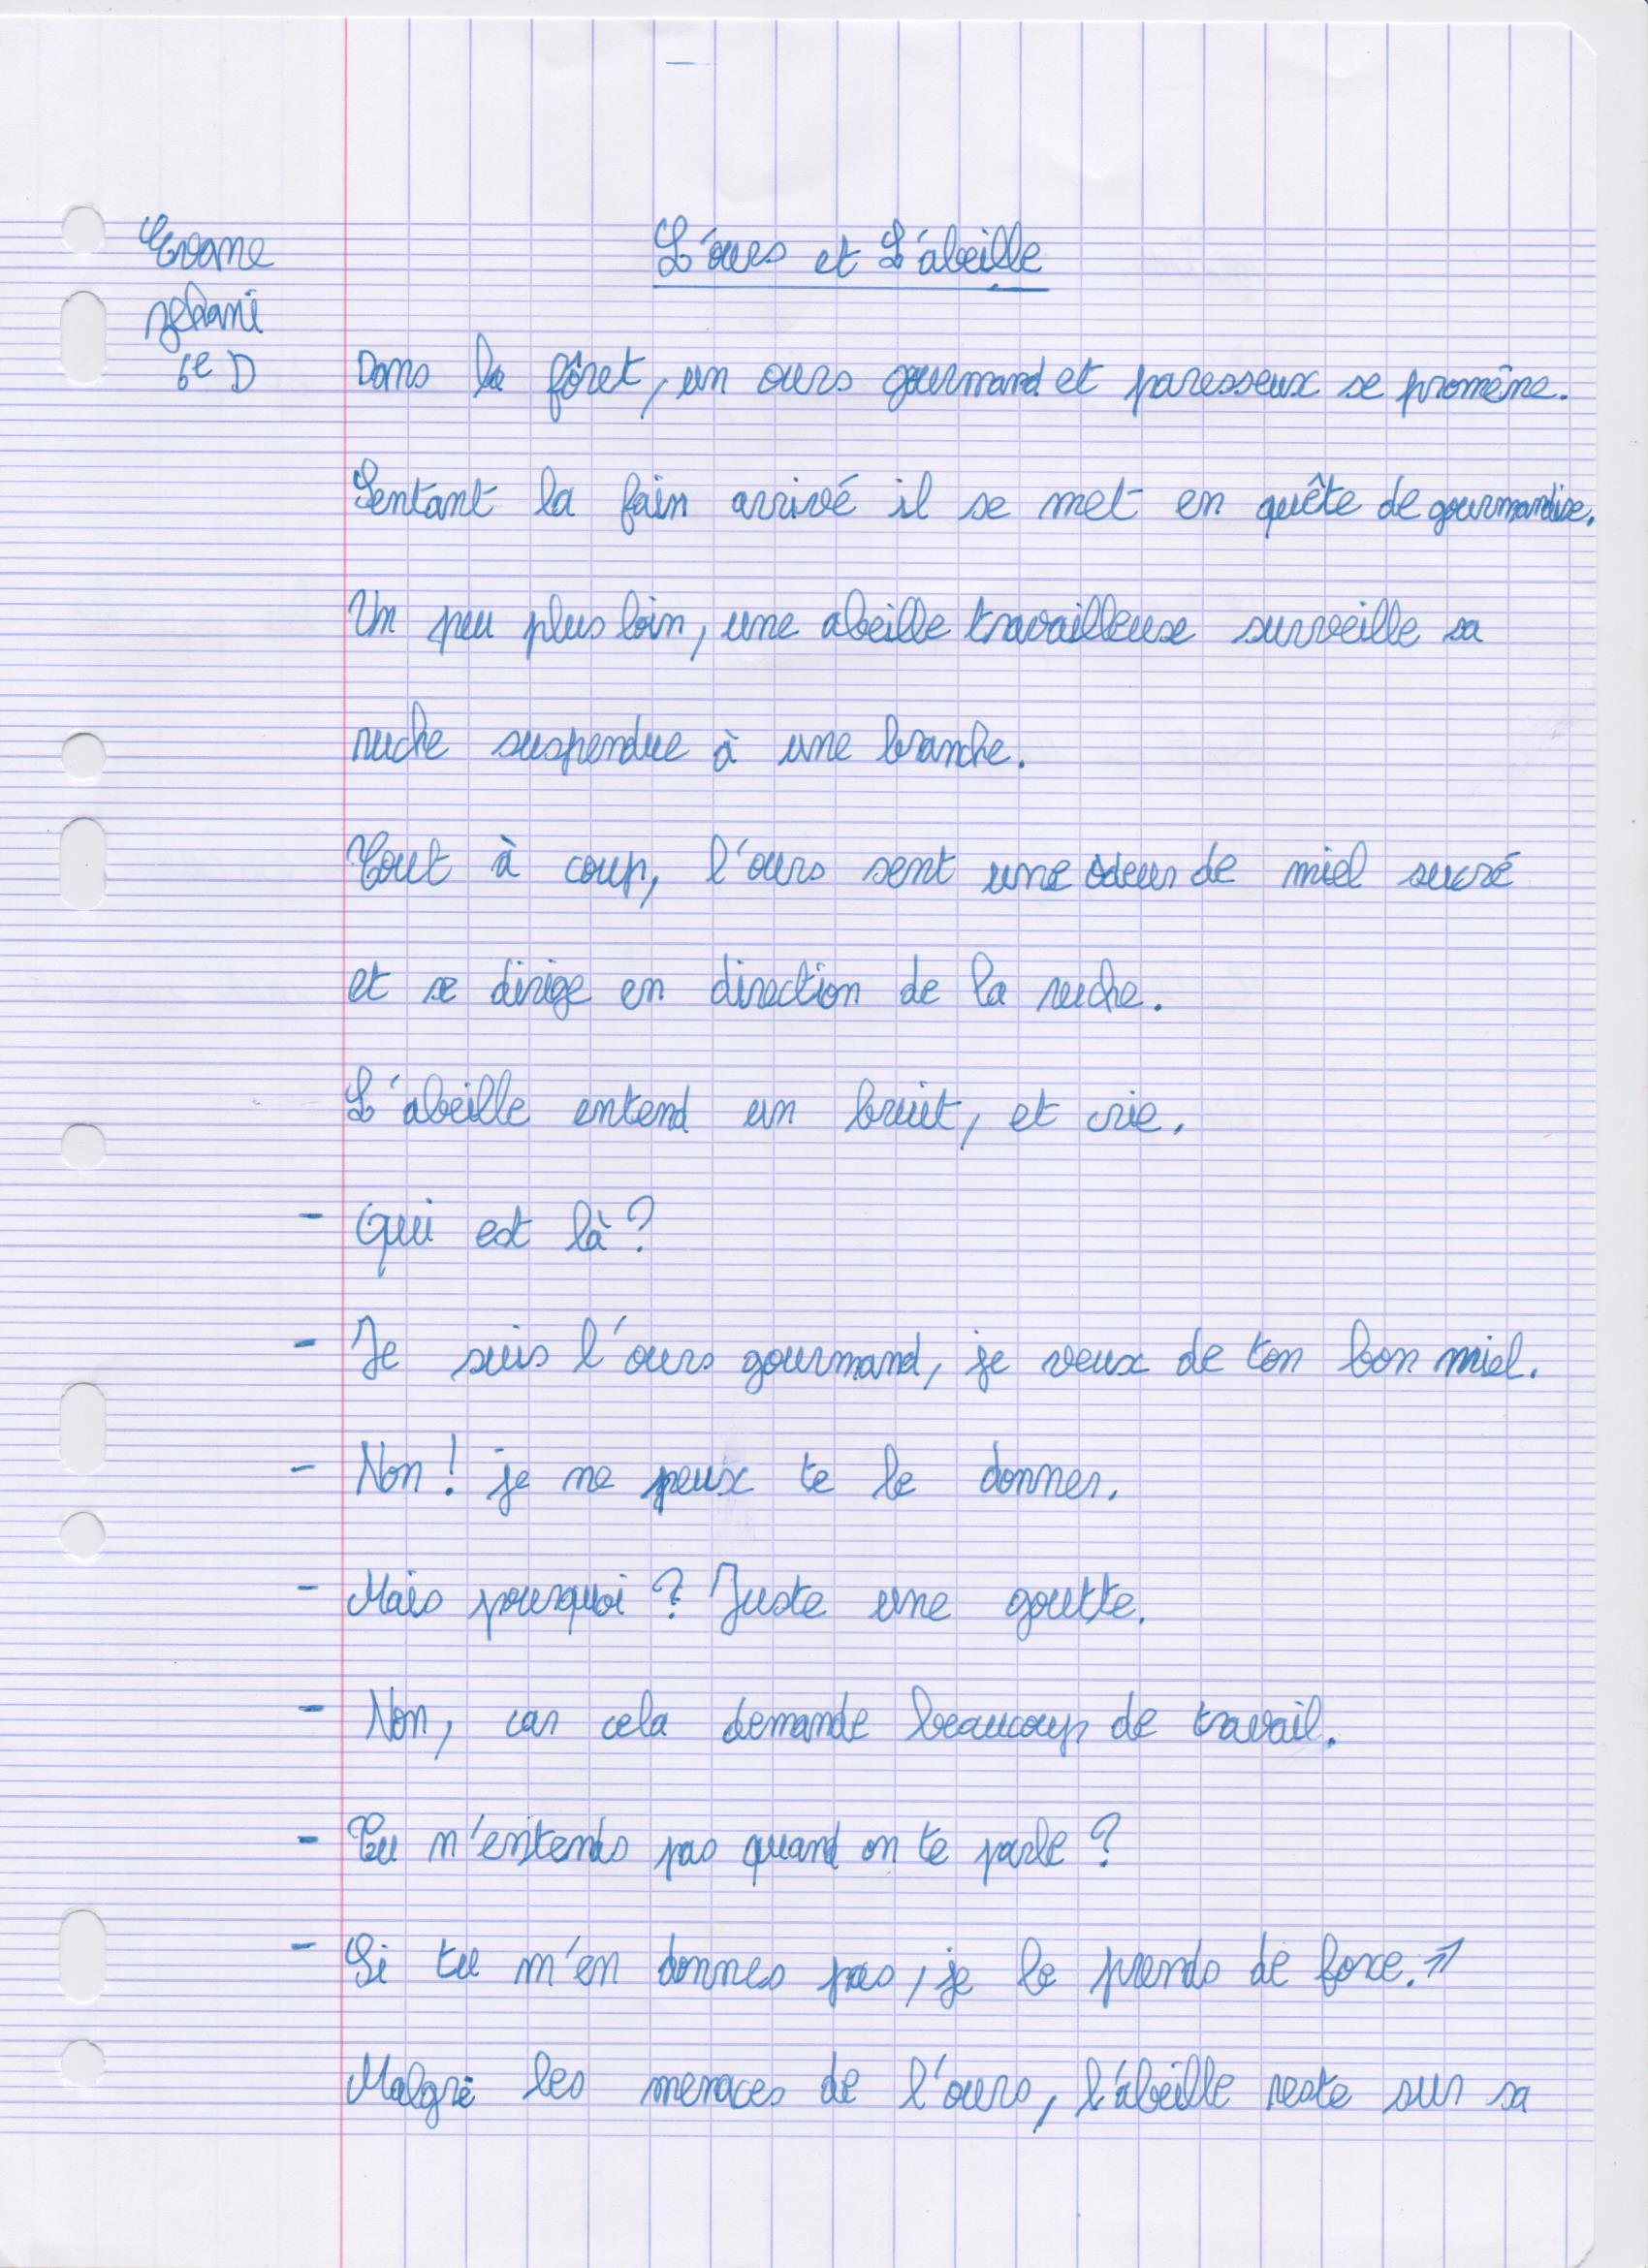 Evane
L'ours et L'abeille
6e D
Dans la fôret, un ours gourmand et paresseux se promène.
Sentant la fain arrivé il se met en quête de gourmandise.
Un peu plus loin, une abeille travailleuse surveille sa
ruche suspendue à une branche.
Tout à coup, l'ours sent une odeur de miel sucré
et se dirige en direction de la ruche.
L'abeille entend un bruit, et crie.
- Qui est là ?
- Je suis l'ours gourmand, je veux de ton bon miel.
- Non ! je ne peux te le donner.
- Mais pourquoi ? Juste une goutte.
- Non, car cela demande beaucoup de travail.
- Tu n'entends pas quand on te parle ?
- Si tu m'en donnes pas, je le prends de force. »
Malgré les menaces de l'ours, l'abeille reste sur sa